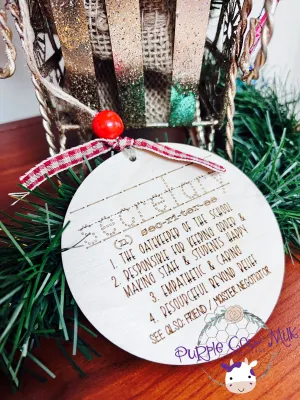 secretary
(n) sec·re·tar·ee
1. THE GATEKEEPER OF THE SCHOOL
2. RESPONSIBLE FOR KEEPING ORDER &
MAKING STAFF & STUDENTS HAPPY
3. EMPATHETIC & CARING
4. RESOURCEFUL BEYOND RELIEF
SEE ALSO: FRIEND / MASTER NEGOTIATOR
PURPLE COW MILK